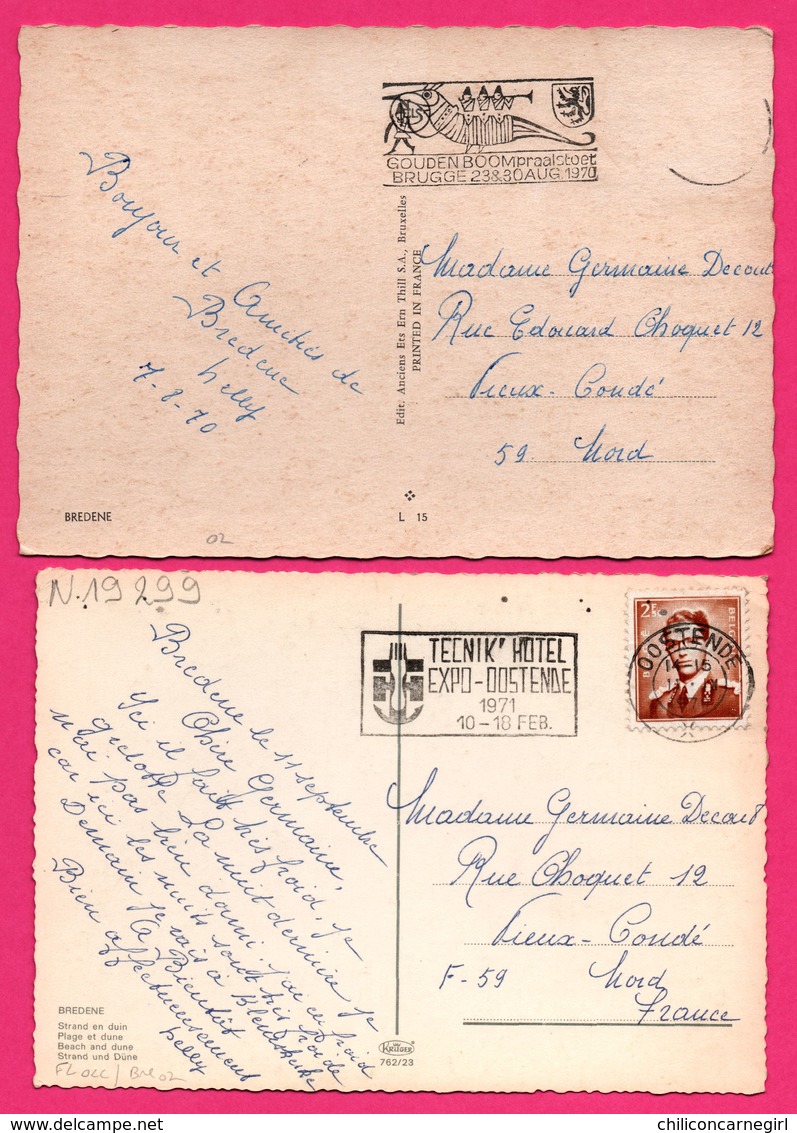 GOUDEN BOOMpraalstoet
BRUGGE 23&30 AUG. 1970
Bonjour et Amitiés de
Bredene
Nelly
7-8-70
Edit. Anciens Ets Ern Thill S.A., Bruxelles
PRINTED IN FRANCE
Madame Germaine Decout
Rue Edouard Choquet 12
Vieux-Condé
59 Nord
BREDENE
02
L 15
N.19 299
TECNIK' HOTEL
EXPO-OOSTENDE
1971
10-18 FEB.
2F50
BELG
OOSTENDE
14-15
Bredene le 11 septembre
Chère Germaine,
Ici il fait très froid. Je
grelotte La nuit dernière je
n'ai pas bien dormi. J'ai eu froid
car ici les nuits sont très froide
Demain je vais à Blankenberke
A Bientôt
Bien affectueusement
Nelly
Madame Germaine Decout
Rue Choquet 12
Vieux-Condé
F-59 Nord
France
BREDENE
Strand en duin
Plage et dune
Beach and dune
Strand und Düne
KRÜGER
762/23
FLOCC / Bre 02
chiliconcarnegirl